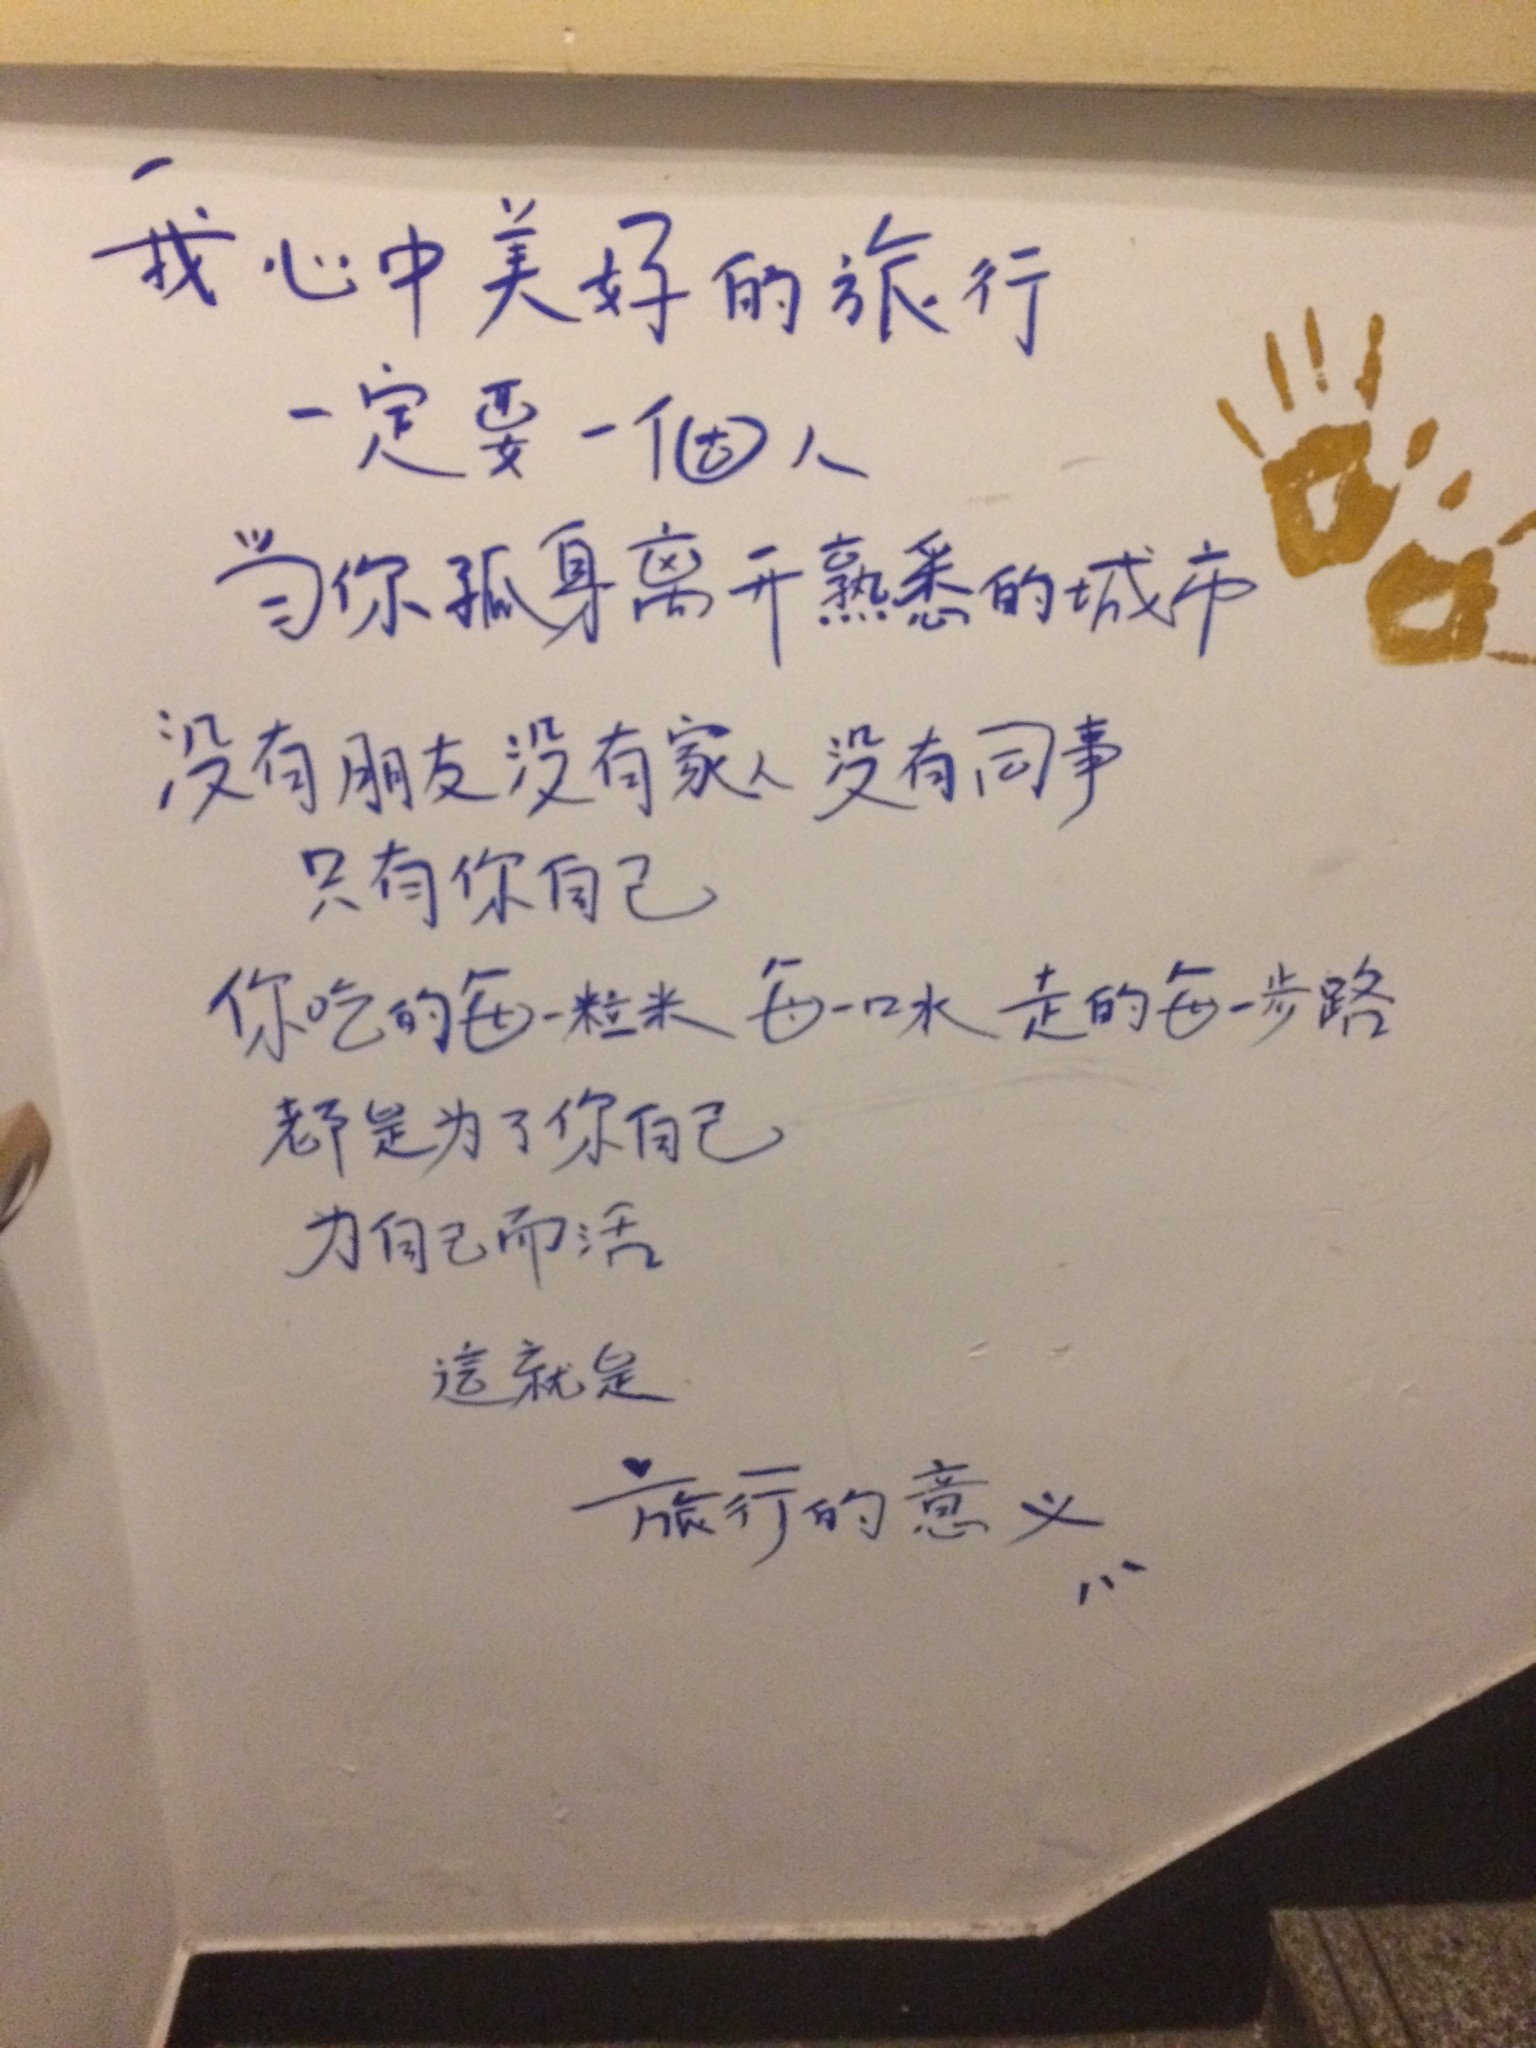 我心中美好的旅行
一定要一個人
当你孤身离开熟悉的城市
没有朋友没有家人 没有同事
只有你自己
你吃的每一粒米 每一口水 走的每一步路
都是为了你自己
为自己而活
這就是
旅行的意义